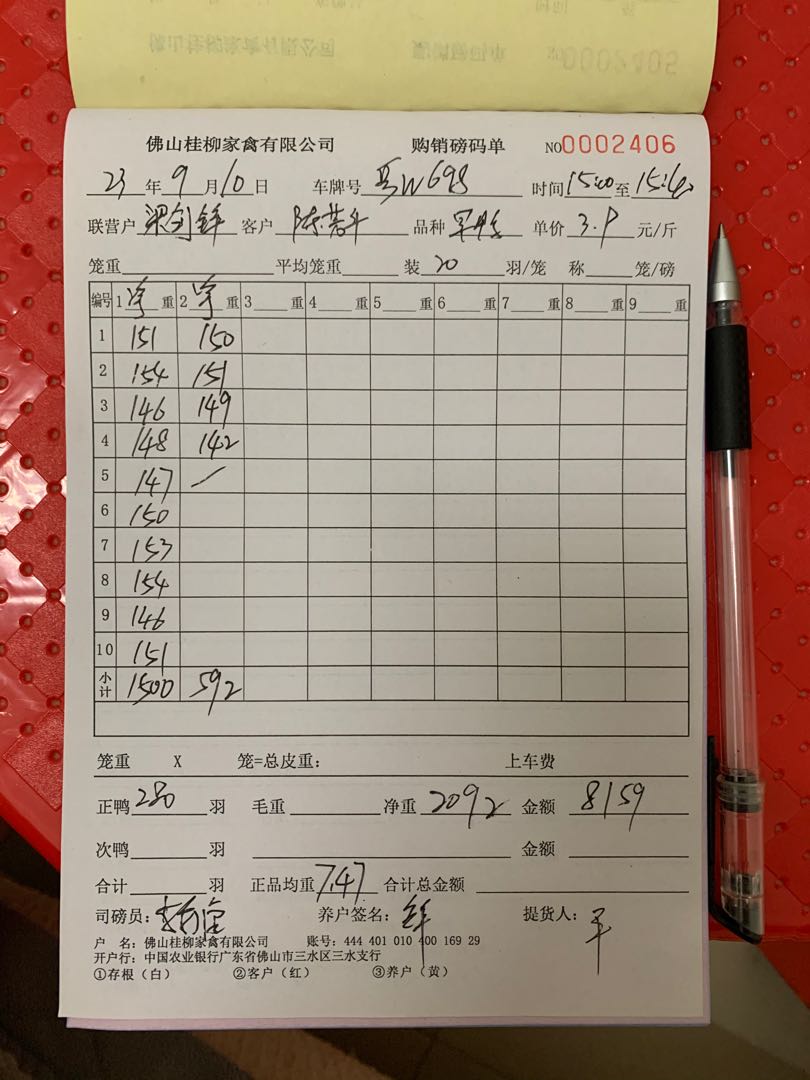 佛山桂柳家禽有限公司 购销磅码单 NO0002406
23年9月10日 车牌号 W698 时间15:40至15:40
联营户 梁剑锋 客户 陈 品种 单价 3.9 元/斤
笼重 平均笼重 装 20 羽/笼 称 笼/磅
编号 1 净 重 2 净 重 3 重 4 重 5 重 6 重 7 重 8 重 9 重
1 151 150
2 154 151
3 146 149
4 148 142
5 147 /
6 150
7 153
8 154
9 146
10 151
小计 1500 592
笼重 X 笼=总皮重: 上车费
正鸭 280 羽 毛重 净重 2092 金额 8159
次鸭 羽 金额
合计 羽 正品均重 7.47 合计总金额
司磅员: 养户签名: 锋 提货人:
户 名: 佛山桂柳家禽有限公司 账号: 444 401 010 400 169 29
开户行: 中国农业银行广东省佛山市三水区三水支行
①存根(白) ②客户(红) ③养户(黄)